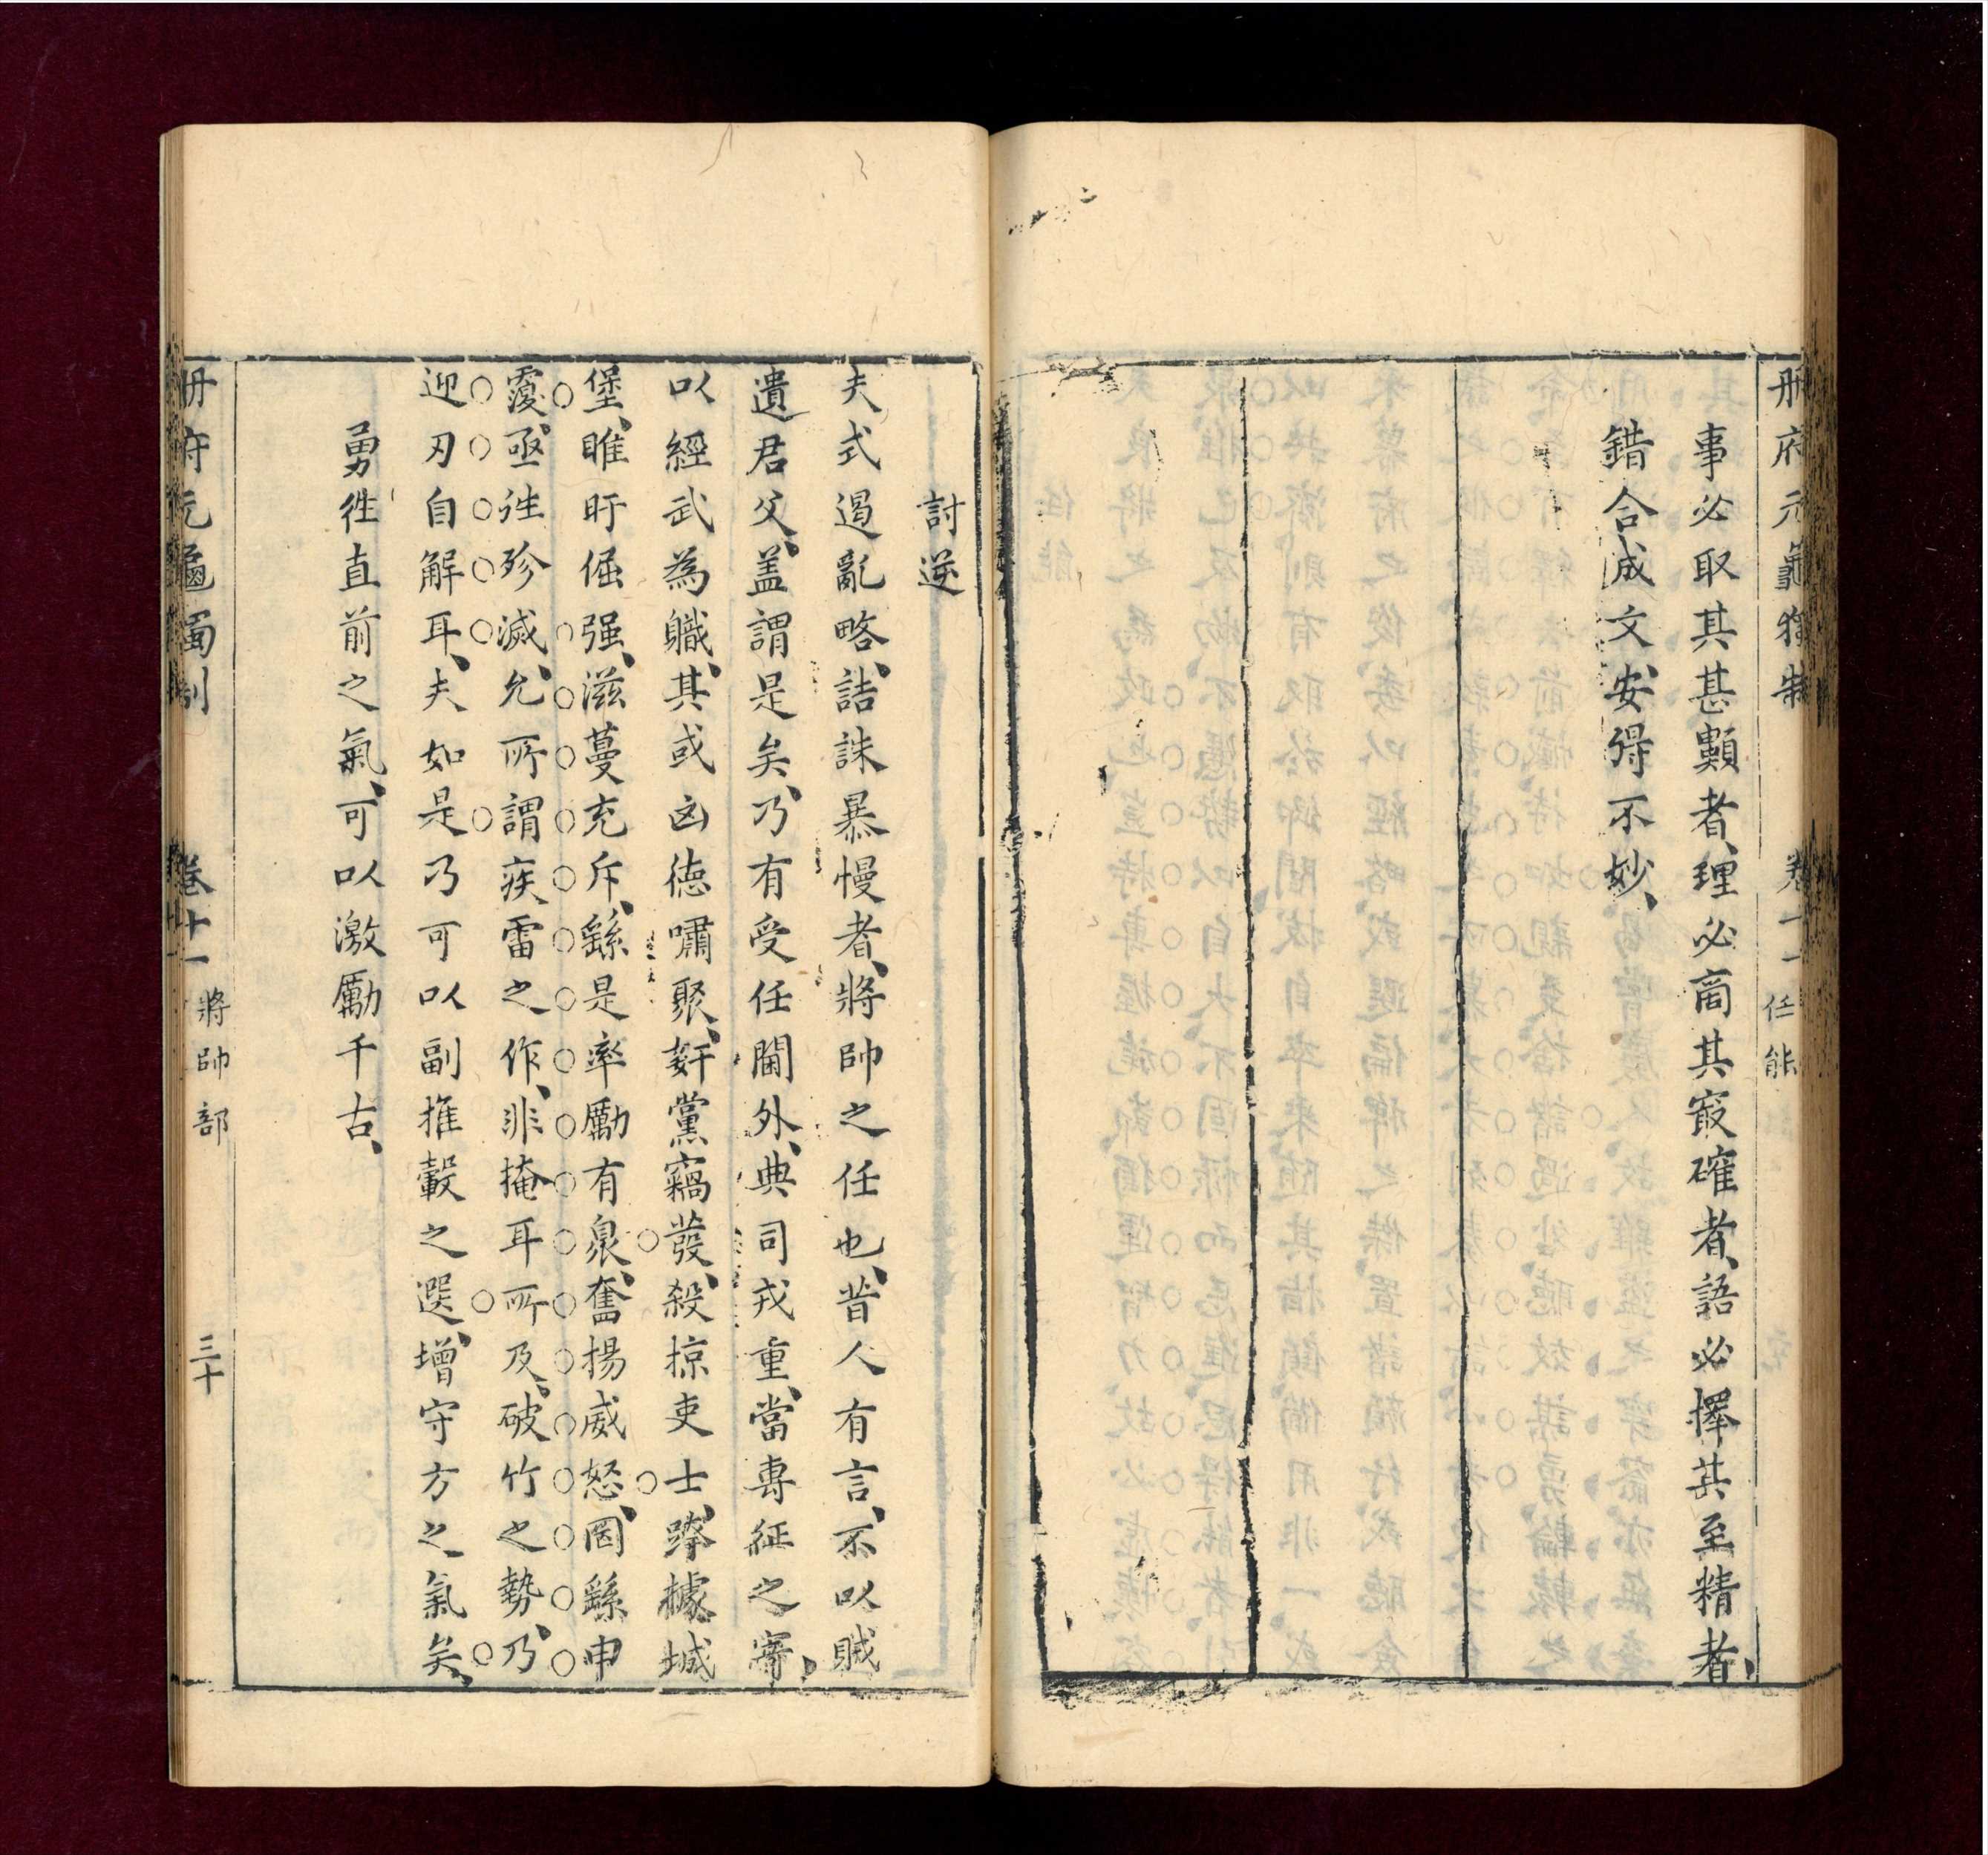 册府元龜獨制 卷十一 任能
事必取其甚顯者、理必商其㝡確者、語必擇其至精者、
錯合成文、安得不妙、
討逆
夫式遏亂略、詰誅暴慢者、將帥之任也、昔人有言、不以賊
遺君父、盖謂是矣、乃有受任閫外、典司戎重、當專征之寄、
以經武為職、其或凶德嘯聚、姧黨竊發、殺掠吏士、蹂㩀城
堡、睢盱倔强、滋蔓充斥、繇是率勵有衆、奮揚威怒、罔繇申
覆、亟徃殄滅、允所謂疾雷之作、非掩耳所及、破竹之勢、乃
迎刃自解耳、夫如是乃可以副推轂之選、增守方之氣矣、
勇徃直前之氣、可以激勵千古、
册府元龜獨制 卷十一 將帥部 三十